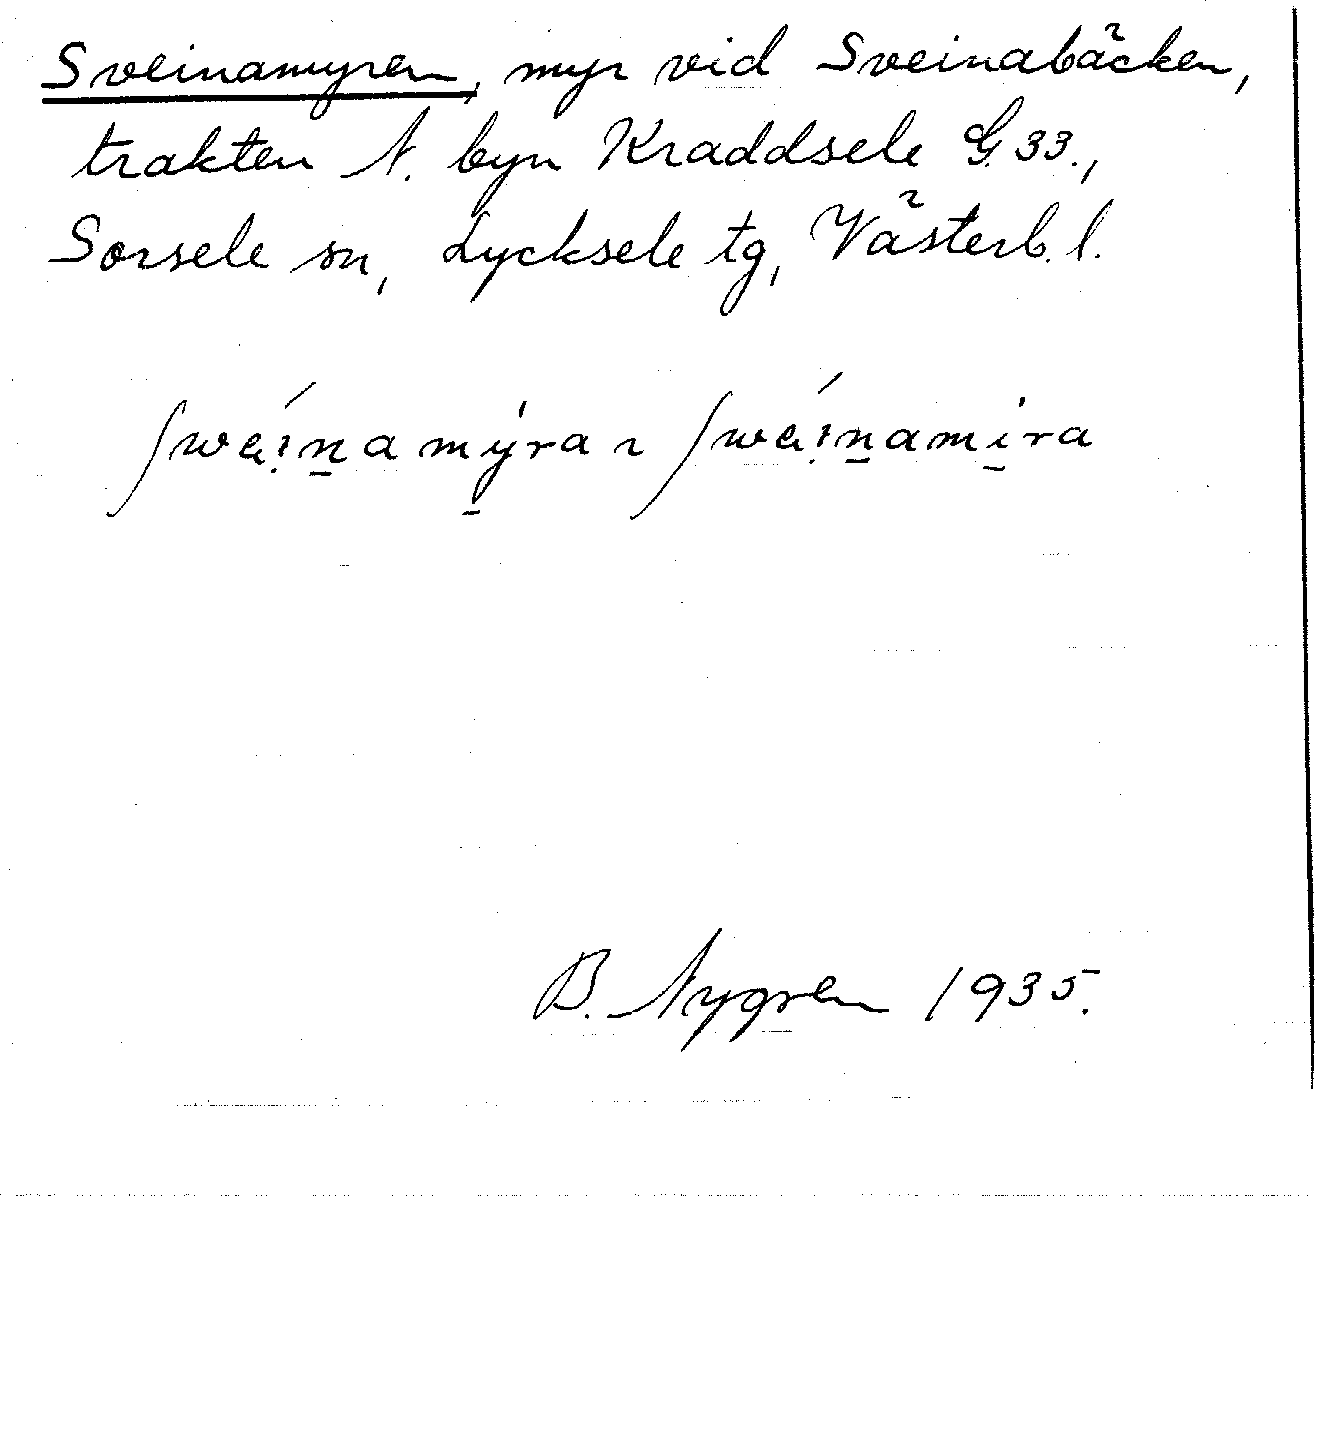 Sveinamyren, myr vid Sveinabäcken,
trakten N. byn Kraddsele G. 33.,
Sorsele sn, Lycksele tg, Västerb. l.
B. Nygren 1935.